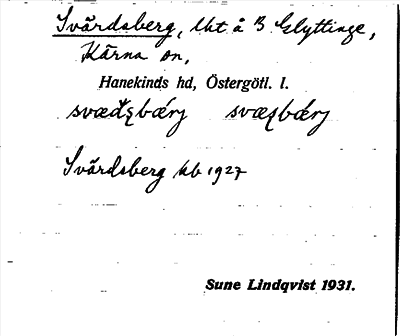 Svärdsberg, lht å B Glyttinge,
Kärna sn,
Hanekinds hd, Östergötl. l.
svæḍʂbærj svæʂbærj
Svärdsberg kb 1927
Sune Lindqvist 1931.